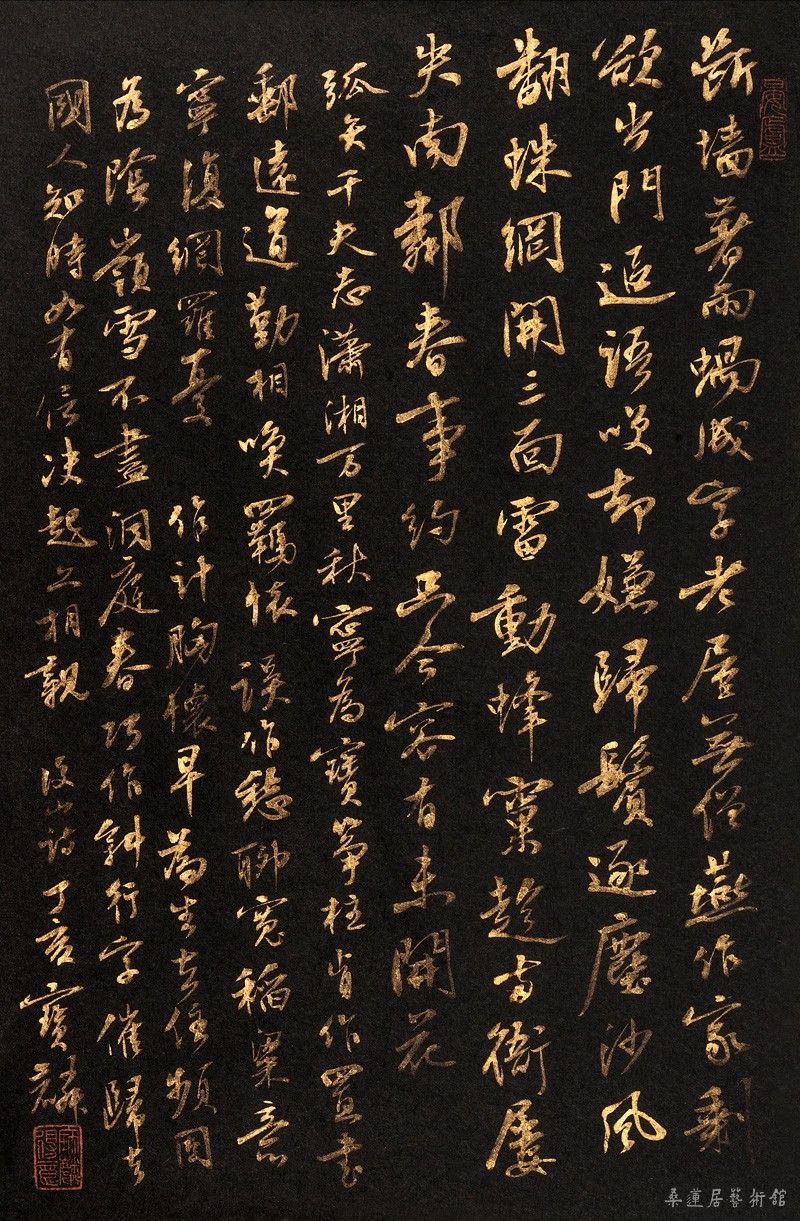 斷墻著雨蝸成字老屋無僧燕作家剩
欲出門追語笑却嫌歸鬢逐塵沙風
翻蛛網開三面雷動蜂窠趁兩衙屢
失南鄰春事約只今容有未開花
孤矢千夫志瀟湘万里秋寧為寶箏柱肯作置書
郵遠道勤相喚羈懷誤作愁聊寬稻粱意
寧復網羅憂 作計胸懷早為生去住頻因
為陰嶺雪不盡洞庭春巧作斜行字催歸去
國人知時如有信決起亦相親 後山詩丁亥寶麟
桑蓮居藝術館